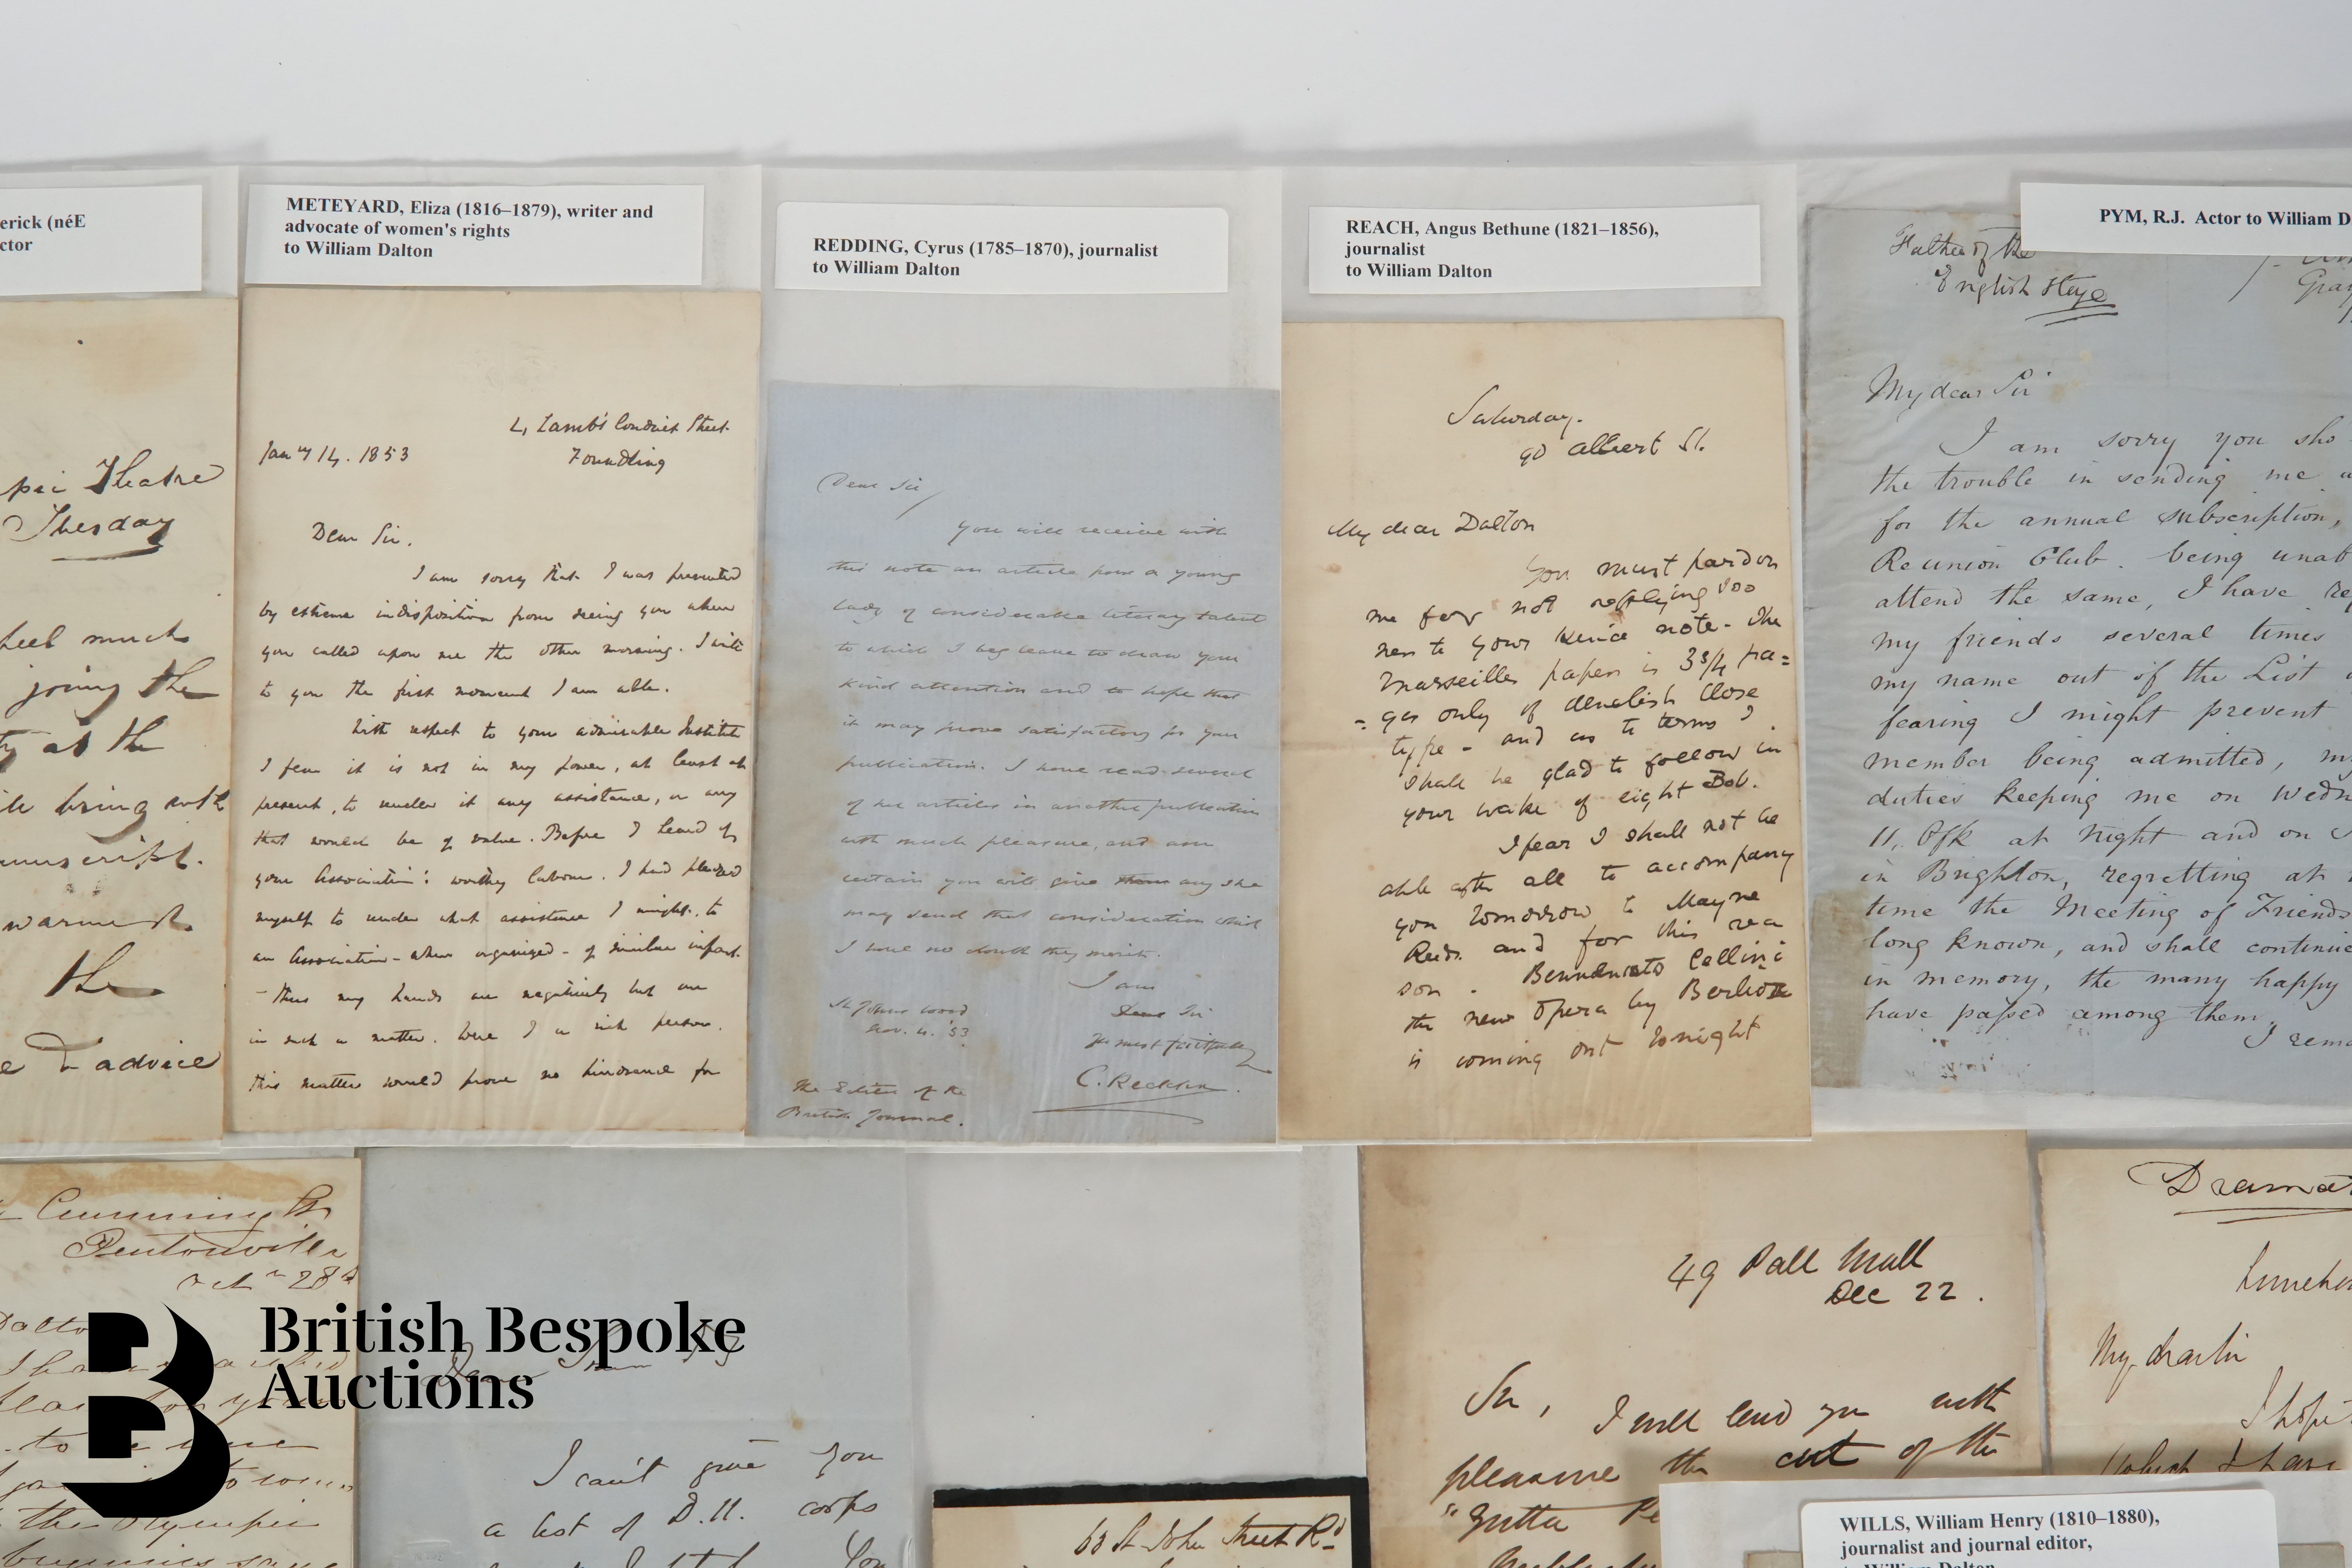 erick (néE
ctor
METEYARD, Eliza (1816–1879), writer and
advocate of women's rights
to William Dalton
REDDING, Cyrus (1785–1870), journalist
to William Dalton
REACH, Angus Bethune (1821–1856),
journalist
to William Dalton
PYM, R.J. Actor to William D
pic Theatre
Tuesday
feel much
joing the
at the
bring with
nuscript.
warmest
the
& advice
4, Lamb's Conduit Street.
Jany 14. 1853
Foundling
Dear Sir.
I am sorry that I was prevented
by extreme indisposition from seeing you when
you called upon me the other morning. I write
to you the first moment I am able.
With respect to your admirable Institute
I fear it is not in my power, at least at
present, to render it any assistance, or any
that would be of value. Before I heard of
your Association's worthy labour. I had pledged
myself to render what assistance I might, to
an Association - when organized - of similar import.
- thus my hands are negatively
in such a matter. Were I a rich person.
this matter would prove no hindrance for
Dear Sir
You will receive with
this note an article from a young
lady of considerable literary talent
to which I beg leave to draw your
kind attention and to hope that
it may prove satisfactory for your
publication. I have read several
of her articles in another publication
with much pleasure, and am
certain you will give them any she
may send that consideration which
I have no doubt they merit.
I am
Dear Sir
St Johns Wood
Nov. 4. '53.
Yrs most faithfully
C. Redding.
The Editor of the
British Journal.
Saturday.
90 Albert St.
My dear Dalton
You must pardon
me for not replying soo
ner to your kind note - The
Marseilles paper is 3 3/4 pa=
= ges only of denelish close
type - and as to terms I
shall be glad to follow in
your wake of eight Bob.
I fear I shall not be
able after all to accompany
you tomorrow to Mayne
Reids and for this rea
son - Benvenuto Cellini
the new Opera by Berlioz
is coming out tonight
Father of the
English Stage
My dear Sir
I am sorry you sho
the trouble in sending me
for the annual subscription,
Reunion Club. being unab
attend the same, I have re
my friends several times
my name out of the List
fearing I might prevent
member being admitted, m
duties keeping me on Wedn
11, O'fk at Night and on
in Brighton, regretting at
time the Meeting of Friends
long known, and shall continue
in memory, the many happy
have passed among them.
I rema
Cumming St
Pentonville
28
Dalto
to
the Olympic
I can't give you
a list of D.H. corps
You
63 St John Street Rd
49 Pall Mall
Dec 22.
Sir,
I will lend you with
pleasure the cut of the
"Gutta Pe
Drama
My dear Sir
I hope
which I have
WILLS, William Henry (1810–1880),
journalist and journal editor,
to William Dalton
British Bespoke
Auctions